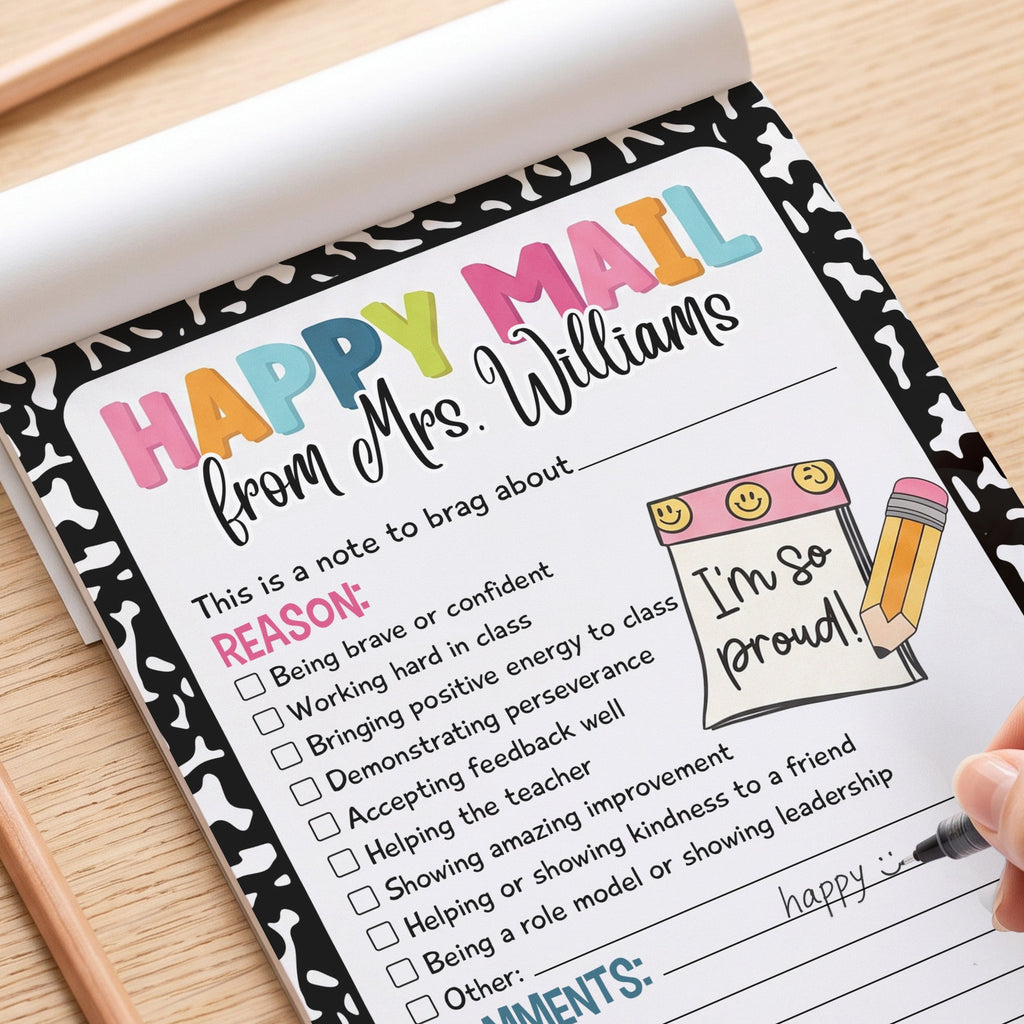 HAPPY MAIL
from Mrs. Williams
This is a note to brag about
REASON:
Being brave or confident
Working hard in class
Bringing positive energy to class
Demonstrating perseverance
Accepting feedback well
Helping the teacher
Showing amazing improvement
Helping or showing kindness to a friend
Being a role model or showing leadership
Other:
I'm so
proud!
happy
MMENTS: